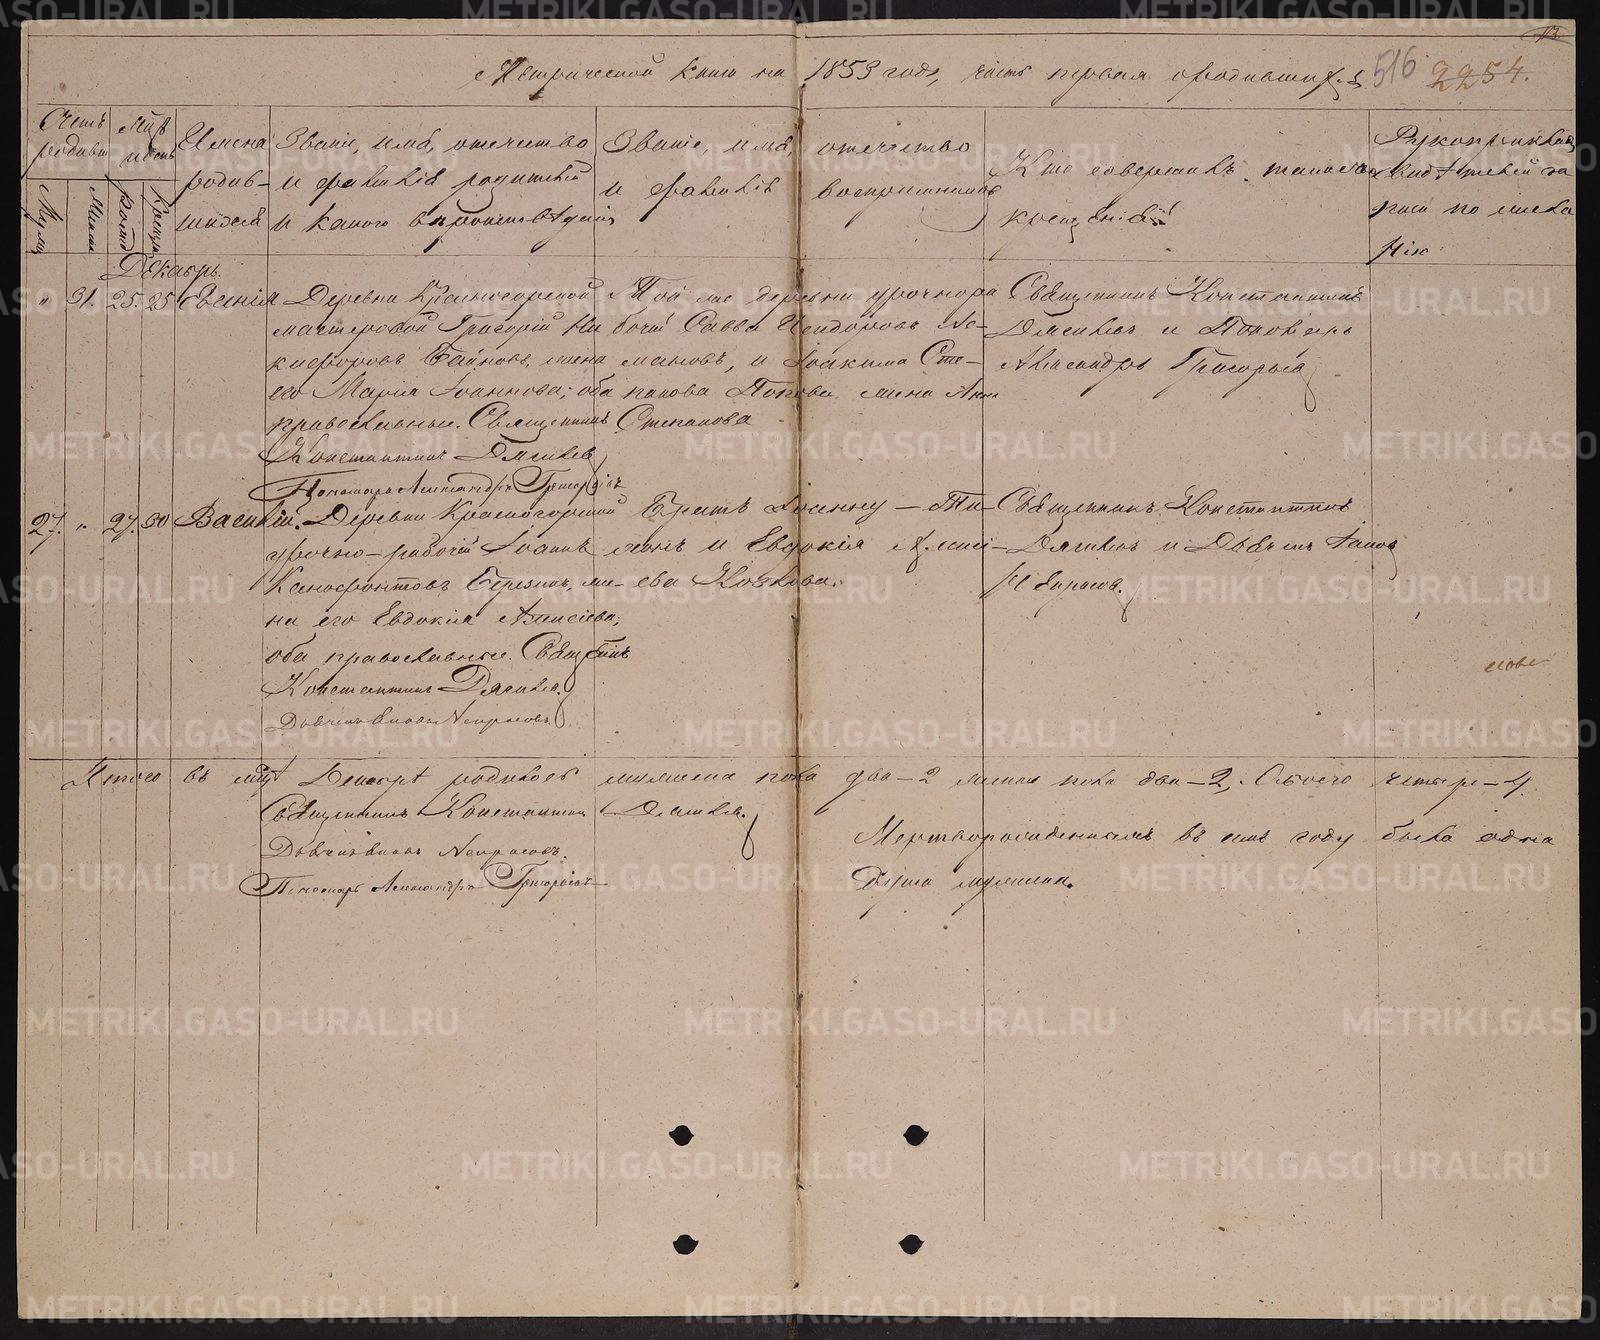 Метрической книги на 1859 годъ, часть первая о родившихся
516 2254.
Счетъ родивш
Мцъ и день
Имена родив-шихся
Званіе, имя, отечество и фамилія родителей и какого вѣроисповѣданія
Званіе, имя, отечество и фамилія воспріемниковъ
Кто совершалъ таинство крещенія
Рукоприкладство свидѣтелей записи по желанію
Декабрь.
" 31. 25. 25 Евгенія
Деревни Красногорской
мастеровой Григорій Ни
кифоровъ Баиновъ, жена
его Марія Іоаннова; оба
православные. Священникъ
Константинъ Дягилевъ
Пономарь Александръ Григорьевъ
Той же деревни урочнора
бочій Савва Исидоровъ
и Іоакима Сте-
панова Попова жена Анна
Степанова
Священникъ Константинъ
Дягилевъ и Пономарь
Александръ Григорьевъ
27. " 27. 30 Василій.
Деревни Красногорской
урочно-рабочій Іоаннъ
Ксенофонтовъ Березинъ, же-
на его Евдокія Алексіева;
оба православные. Священникъ
Константинъ Дягилевъ.
Дьячекъ Іаковъ Некрасовъ.
Братъ Іоанну - Ти-
хонъ и Евдокія Алексі-
ева Козлова.
Священникъ Константинъ
Дягилевъ и Дьячекъ Іаковъ
Некрасовъ.
Итого въ мцѣ Декабрѣ родилось мужеска пола два - 2 женска пола два - 2, Обоего четыре - 4.
Священникъ Константинъ Дягилевъ.
Дьячекъ Іаковъ Некрасовъ.
Пономарь Александръ Григорьевъ
Мертворожденныхъ въ семъ году была одна
душа мужеска.
METRIKI.GASO-URAL.RU